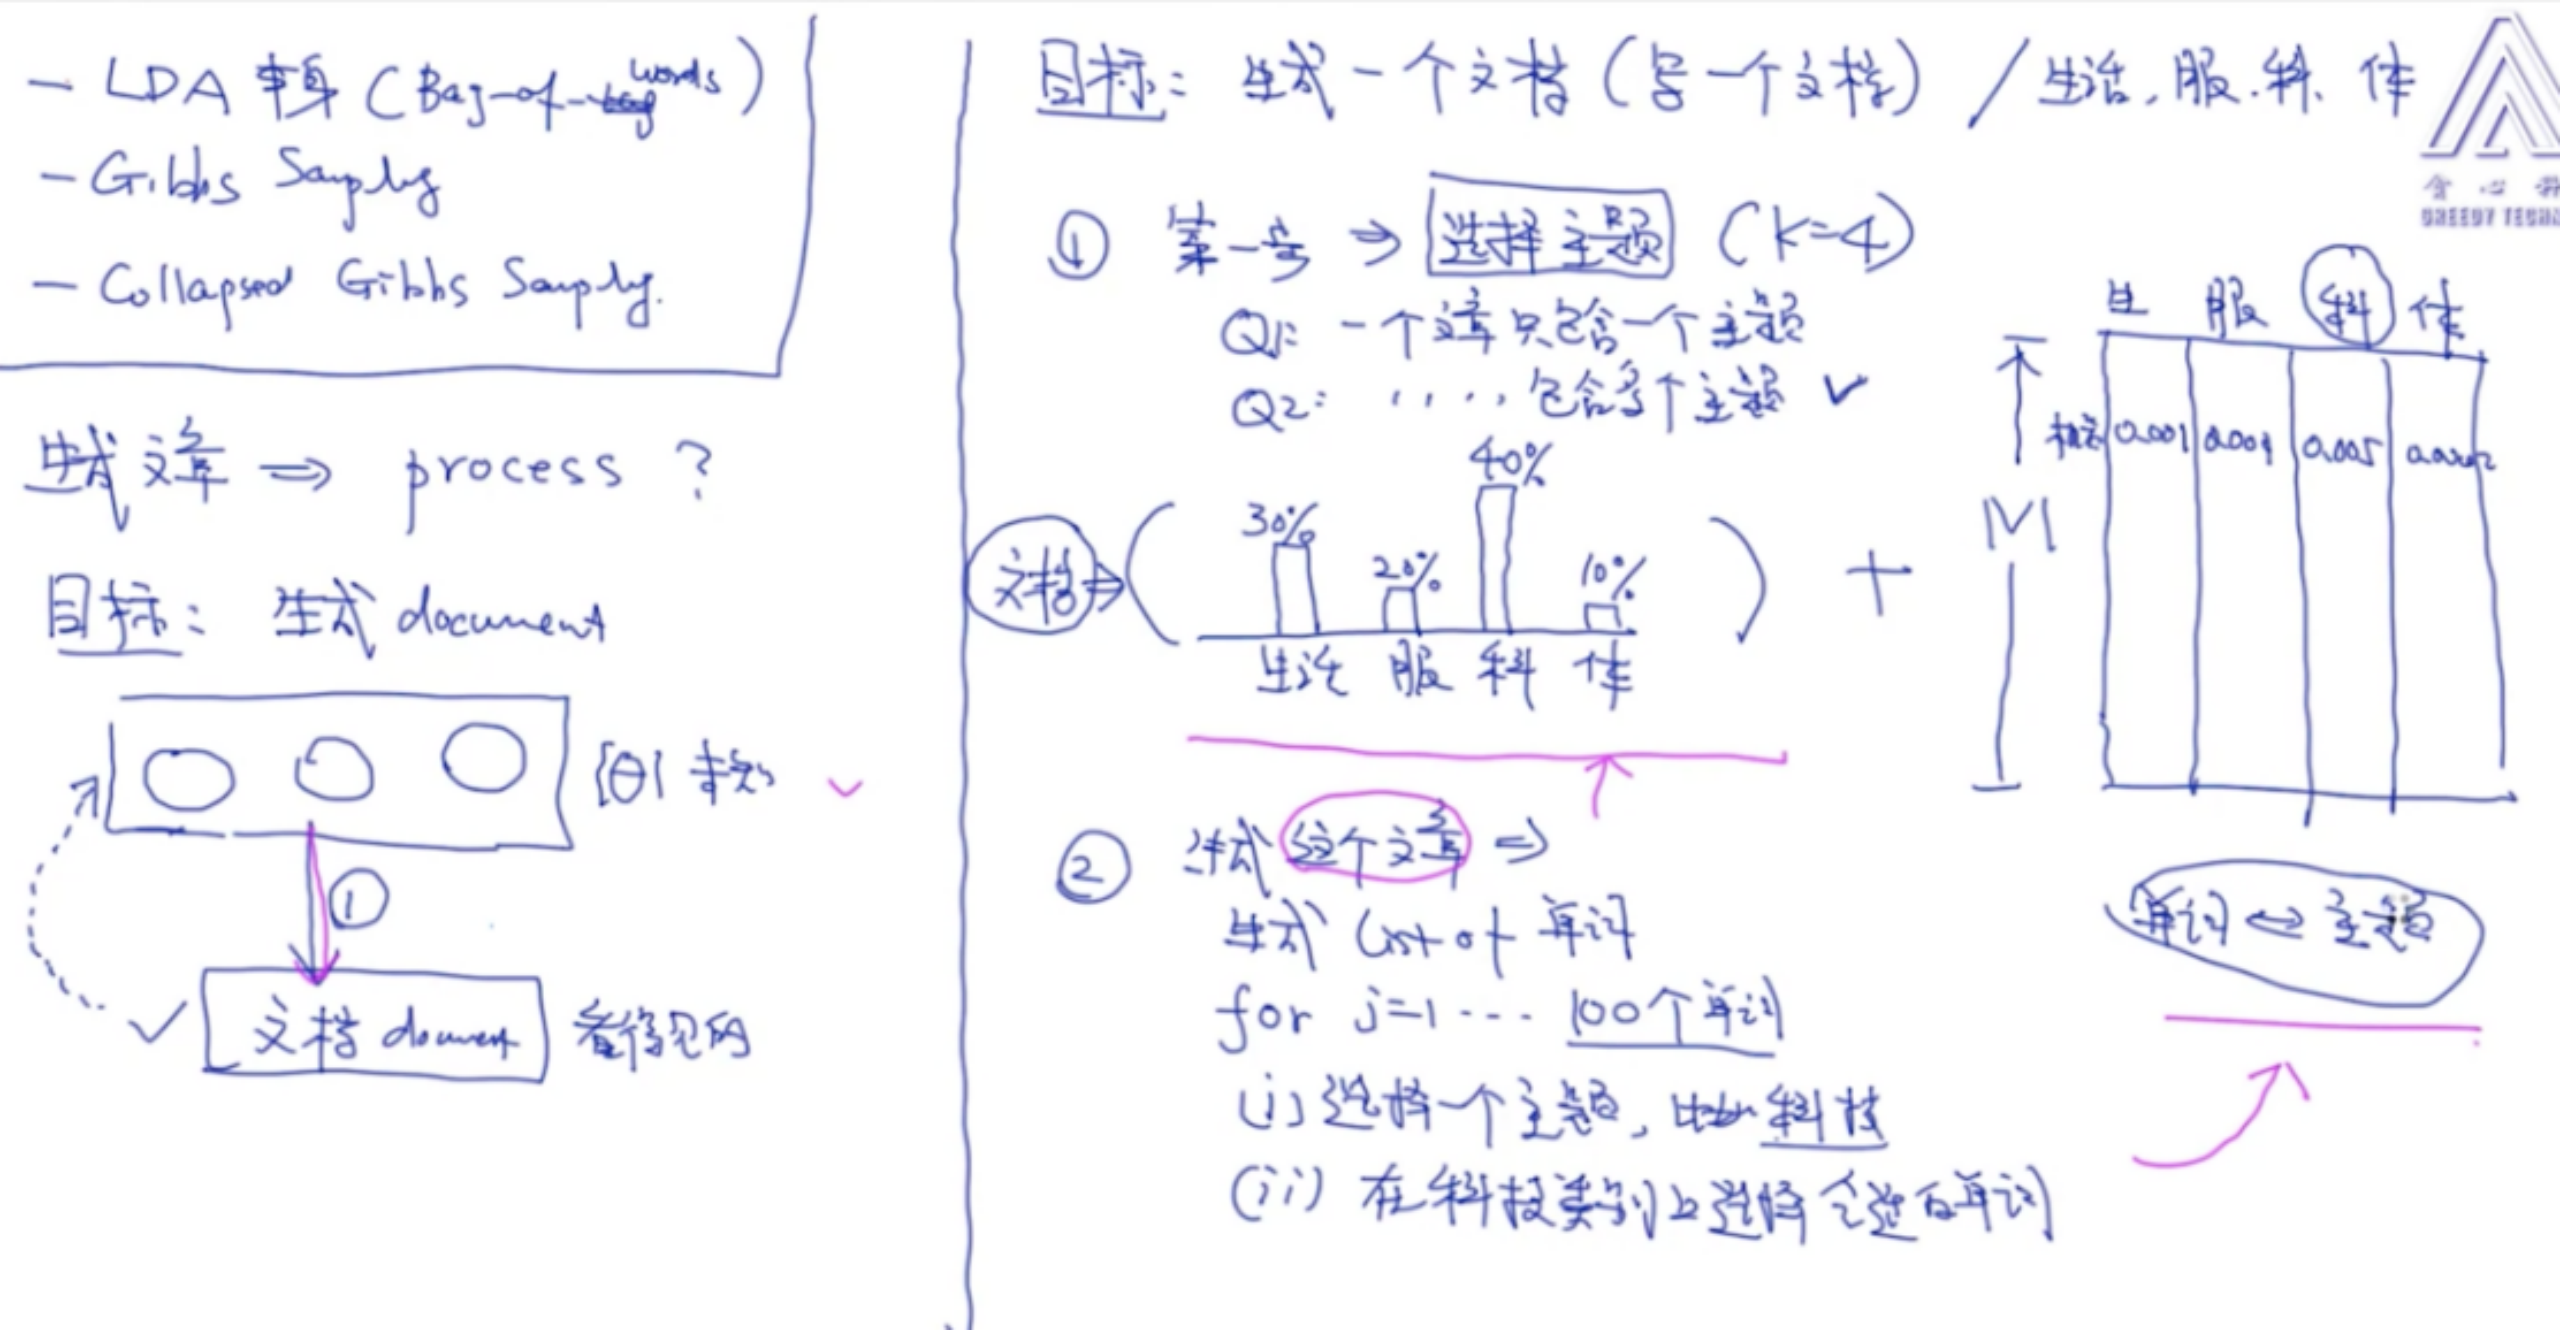 - LDA 本身 (Bag-of-words)
- Gibbs Sampling
- Collapsed Gibbs Sampling.
生成文章 ⇒ process ?
目标: 生成 document
{θ} 未知
①
文档 document 看得见的
目标: 生成一个文档 (写一个文档) / 生活, 服. 科、体
① 第一步 ⇒ 选择主题 (K=4)
Q1: 一个文章只包含一个主题
Q2: ..... 包含多个主题 ✓
文档 ⇒ ( 30% 20% 40% 10% ) +
生活 服 科 体
② 生成这个文章 ⇒
生成 list of 单词
for j=1 ... 100个单词
(i) 选择一个主题, 比如科技
(ii) 在科技类别上选择合适的单词
生 服 科 体
0.001 0.005
M
单词 ⇔ 主题
GREEDY TECH